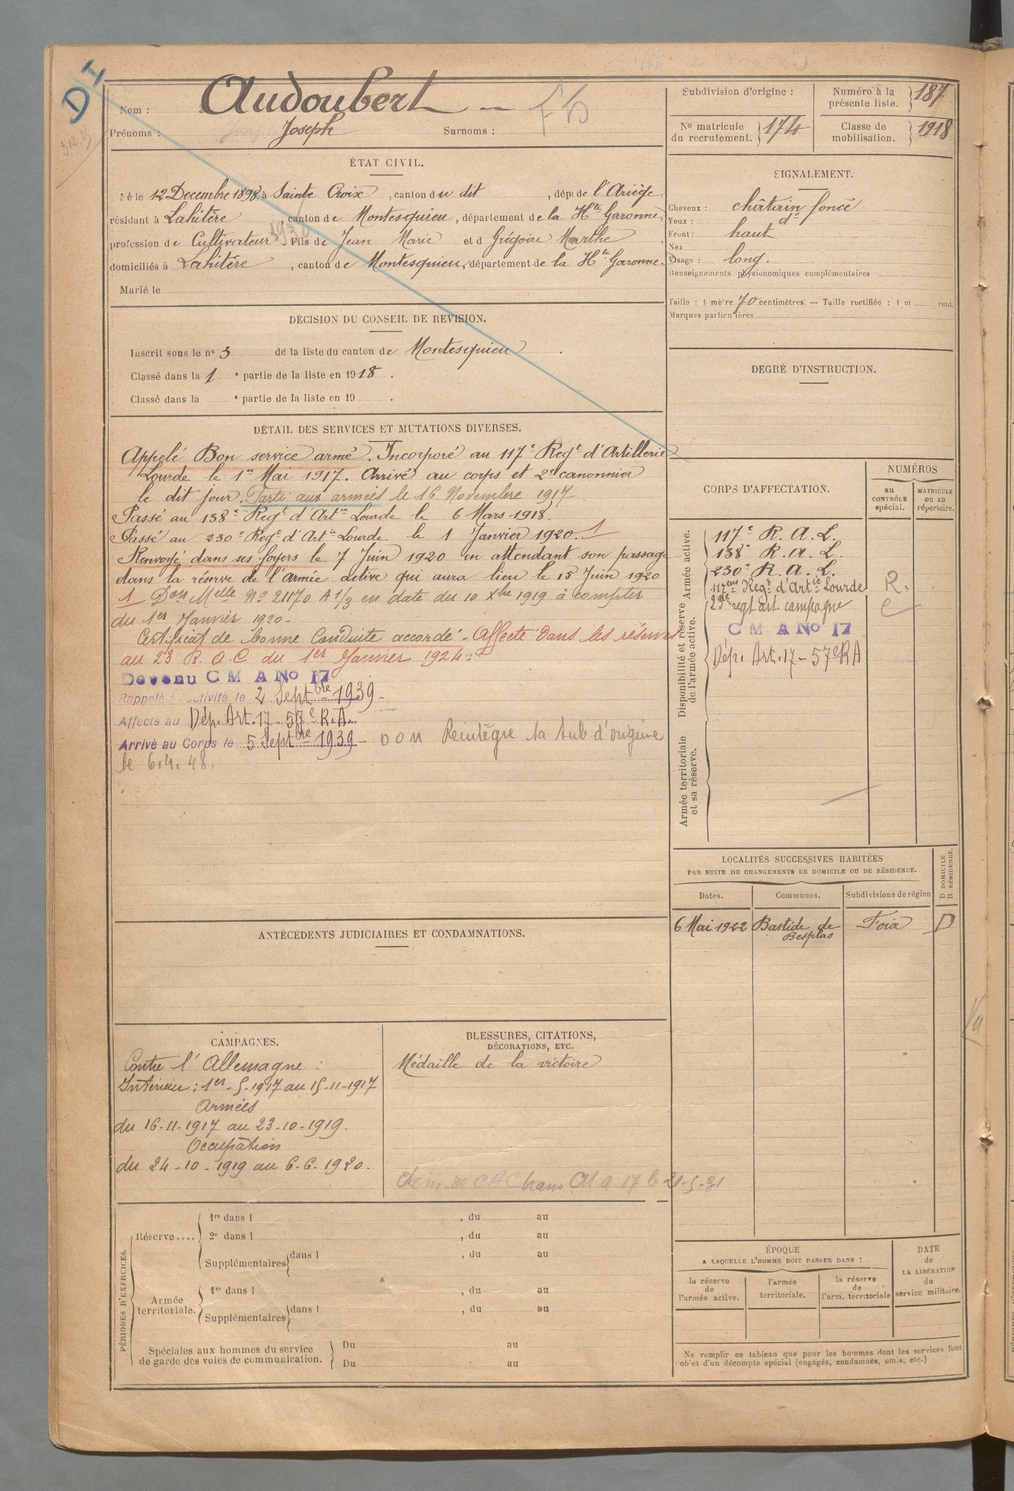 D I
Nom : Audoubert
Prénoms : Joseph Surnoms :
Subdivision d'origine :
Numéro à la présente liste. 187
No matricule du recrutement. 174
Classe de mobilisation. 1918
ÉTAT CIVIL.
Né le 12 Decembre 1898, à Sainte Croix, canton du dit, dépt de l'Ariège,
résidant à Lahitère, canton de Montesquieu, département de la Hte Garonne,
profession de Cultivateur. Fils de Jean Marie et de Grégoire Marthe
domiciliés à Lahitère, canton de Montesquieu, département de la Hte Garonne.
Marié le
SIGNALEMENT.
Cheveux : châtain foncé
Yeux : do
Front : haut
Nez
Visage : long.
Renseignements physionomiques complémentaires
Taille : 1 mètre 70 centimètres. — Taille rectifiée : 1 m cent.
Marques particulières
DÉCISION DU CONSEIL DE REVISION.
Inscrit sous le no 3 de la liste du canton de Montesquieu.
Classé dans la 1e partie de la liste en 1918.
Classé dans la e partie de la liste en 19 .
DEGRÉ D'INSTRUCTION.
DÉTAIL DES SERVICES ET MUTATIONS DIVERSES.
Appelé Bon service armé. Incorporé au 117e Regt d'Artillerie
Lourde le 1er Mai 1917. Arrivé au corps et 2e canonnier
le dit jour. Parti aux armées le 16 Novembre 1917.
Passé au 138e Regt d'Artie Lourde le 6 Mars 1918.
Passé au 230e Regt d'Artie Lourde le 1 Janvier 1920. 1
Renvoyé dans ses foyers le 7 Juin 1920 en attendant son passage
dans la réserve de l'Armée active qui aura lieu le 15 Juin 1920
1 Don Melle No 21170 A 1/3 en date du 10 Xbre 1919 à compter
du 1er Janvier 1920.
Certificat de bonne Conduite accordé - Affecté dans les réserves
au 23 R.A.C. du 1er Janvier 1924.
Devenu C M A No 17
Rappelé à l'activité le 2 Septbre 1939 -
Affecté au Dép. Art. 17 - 57e R.A.
Arrivé au Corps le 5 Septbre 1939 - DOM Réintègre sa sub d'origine
le 6.4.48.
CORPS D'AFFECTATION.
NUMÉROS
AU CONTRÔLE spécial.
MATRICULE ou au répertoire.
Disponibilité et réserve de l'armée active.
Armée active.
117e R.A.L.
138e R.A.L.
230e R.A.L.
117eme Regt d'Artie Lourde
23e regt art. campagne
C M A No 17
Dép. Art. 17 - 57e RA
Armée territoriale et sa réserve.
LOCALITÉS SUCCESSIVES HABITÉES
PAR SUITE DE CHANGEMENTS DE DOMICILE OU DE RÉSIDENCE.
Dates. Communes. Subdivisions de région D DOMICILE R RÉSIDENCE.
6 Mai 1922 Bastide de Besplas Foix D
ANTÉCÉDENTS JUDICIAIRES ET CONDAMNATIONS.
CAMPAGNES.
Contre l'Allemagne :
Intérieur : 1er-5-1917 au 15-11-1917
Armées
du 16-11-1917 au 23-10-1919.
Occupation
du 24-10-1919 au 6-6-1920.
BLESSURES, CITATIONS,
DÉCORATIONS, ETC.
Médaille de la victoire
21-5-31
PÉRIODES D'EXERCICES.
Réserve....
1re dans l , du au
2e dans l , du au
Supplémentaires dans l , du au
Armée territoriale.
1re dans l , du au
Supplémentaires dans l , du au
Spéciales aux hommes du service
de garde des voies de communication.
Du au
Du au
ÉPOQUE
A LAQUELLE L'HOMME DOIT PASSER DANS :
la réserve de l'armée active.
l'armée territoriale.
la réserve de l'arm. territoriale
DATE
de
LA LIBÉRATION
du
service militaire.
Ne remplir ce tableau que pour les hommes dont les services font
objet d'un décompte spécial (engagés, condamnés, omis, etc.)